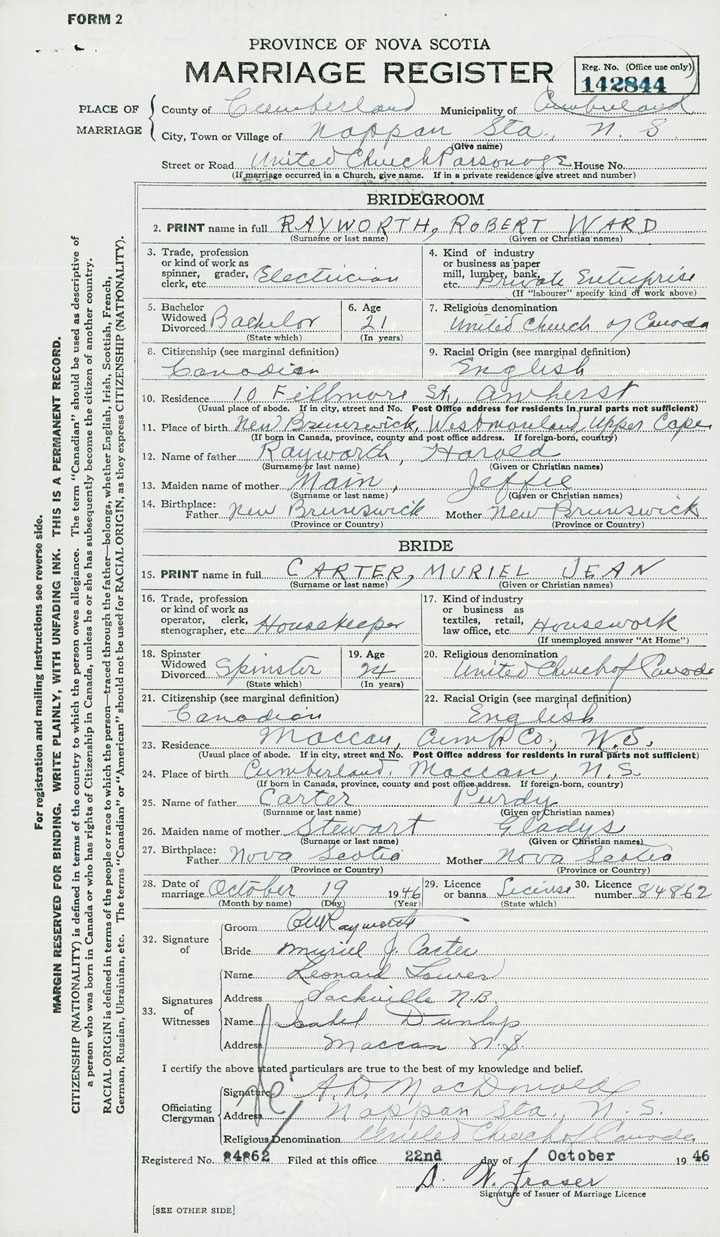 FORM 2
PROVINCE OF NOVA SCOTIA
MARRIAGE REGISTER
Reg. No. (Office use only)
142844
PLACE OF MARRIAGE
County of Cumberland Municipality of Cumberland
City, Town or Village of Nappan Sta., N. S
(Give name)
Street or Road United Church Parsonage House No.
(If marriage occurred in a Church, give name. If in a private residence give street and number)
BRIDEGROOM
2. PRINT name in full RAYWORTH, ROBERT WARD
(Surname or last name) (Given or Christian names)
3. Trade, profession or kind of work as spinner, grader, clerk, etc. Electrician
4. Kind of industry or business as paper mill, lumber, bank, etc. Private Enterprise
(If "labourer" specify kind of work above)
5. Bachelor Widowed Divorced Bachelor
(State which)
6. Age 21
(In years)
7. Religious denomination
United Church of Canada
8. Citizenship (see marginal definition)
Canadian
9. Racial Origin (see marginal definition)
English
10. Residence 10 Fillmore St., Amherst
(Usual place of abode. If in city, street and No. Post Office address for residents in rural parts not sufficient)
11. Place of birth New Brunswick, Westmorland, Upper Cape
(If born in Canada, province, county and post office address. If foreign-born, country)
12. Name of father Rayworth, Harold
(Surname or last name) (Given or Christian names)
13. Maiden name of mother Main, Jeffie
(Surname or last name) (Given or Christian names)
14. Birthplace: Father New Brunswick Mother New Brunswick
(Province or Country) (Province or Country)
BRIDE
15. PRINT name in full CARTER, MURIEL JEAN
(Surname or last name) (Given or Christian names)
16. Trade, profession or kind of work as operator, clerk, stenographer, etc. Housekeeper
17. Kind of industry or business as textiles, retail, law office, etc. Housework
(If unemployed answer "At Home")
18. Spinster Widowed Divorced Spinster
(State which)
19. Age 24
(In years)
20. Religious denomination
United Church of Canada
21. Citizenship (see marginal definition)
Canadian
22. Racial Origin (see marginal definition)
English
23. Residence Maccan, Cumb. Co., N.S.
(Usual place of abode. If in city, street and No. Post Office address for residents in rural parts not sufficient)
24. Place of birth Cumberland, Maccan, N.S.
(If born in Canada, province, county and post office address. If foreign-born, country)
25. Name of father Carter Purdy
(Surname or last name) (Given or Christian names)
26. Maiden name of mother Stewart Gladys
(Surname or last name) (Given or Christian names)
27. Birthplace: Father Nova Scotia Mother Nova Scotia
(Province or Country) (Province or Country)
28. Date of marriage October 19 1946
(Month by name) (Day) (Year)
29. Licence or banns License
(State which)
30. Licence number 84862
32. Signature of
Groom RWRayworth
Bride Muriel J. Carter
33. Signatures of Witnesses
Name Leonard Tower
Address Sackville N.B.
Name Isabel Dunlap
Address Maccan N.S.
I certify the above stated particulars are true to the best of my knowledge and belief.
Officiating Clergyman
Signature A.D. MacDonald
Address Nappan Sta., N. S.
Religious Denomination United Church of Canada
Registered No. 84862 Filed at this office 22nd day of October 1946
D. W. Fraser
Signature of Issuer of Marriage Licence
[SEE OTHER SIDE]
For registration and mailing instructions see reverse side.
MARGIN RESERVED FOR BINDING. WRITE PLAINLY, WITH UNFADING INK. THIS IS A PERMANENT RECORD.
CITIZENSHIP (NATIONALITY) is defined in terms of the country to which the person owes allegiance. The term "Canadian" should be used as descriptive of
a person who was born in Canada or who has rights of Citizenship in Canada, unless he or she has subsequently become the citizen of another country.
RACIAL ORIGIN is defined in terms of the people or race to which the person—traced through the father—belongs, whether English, Irish, Scottish, French,
German, Russian, Ukrainian, etc. The terms "Canadian" or "American" should not be used for RACIAL ORIGIN, as they express CITIZENSHIP (NATIONALITY).